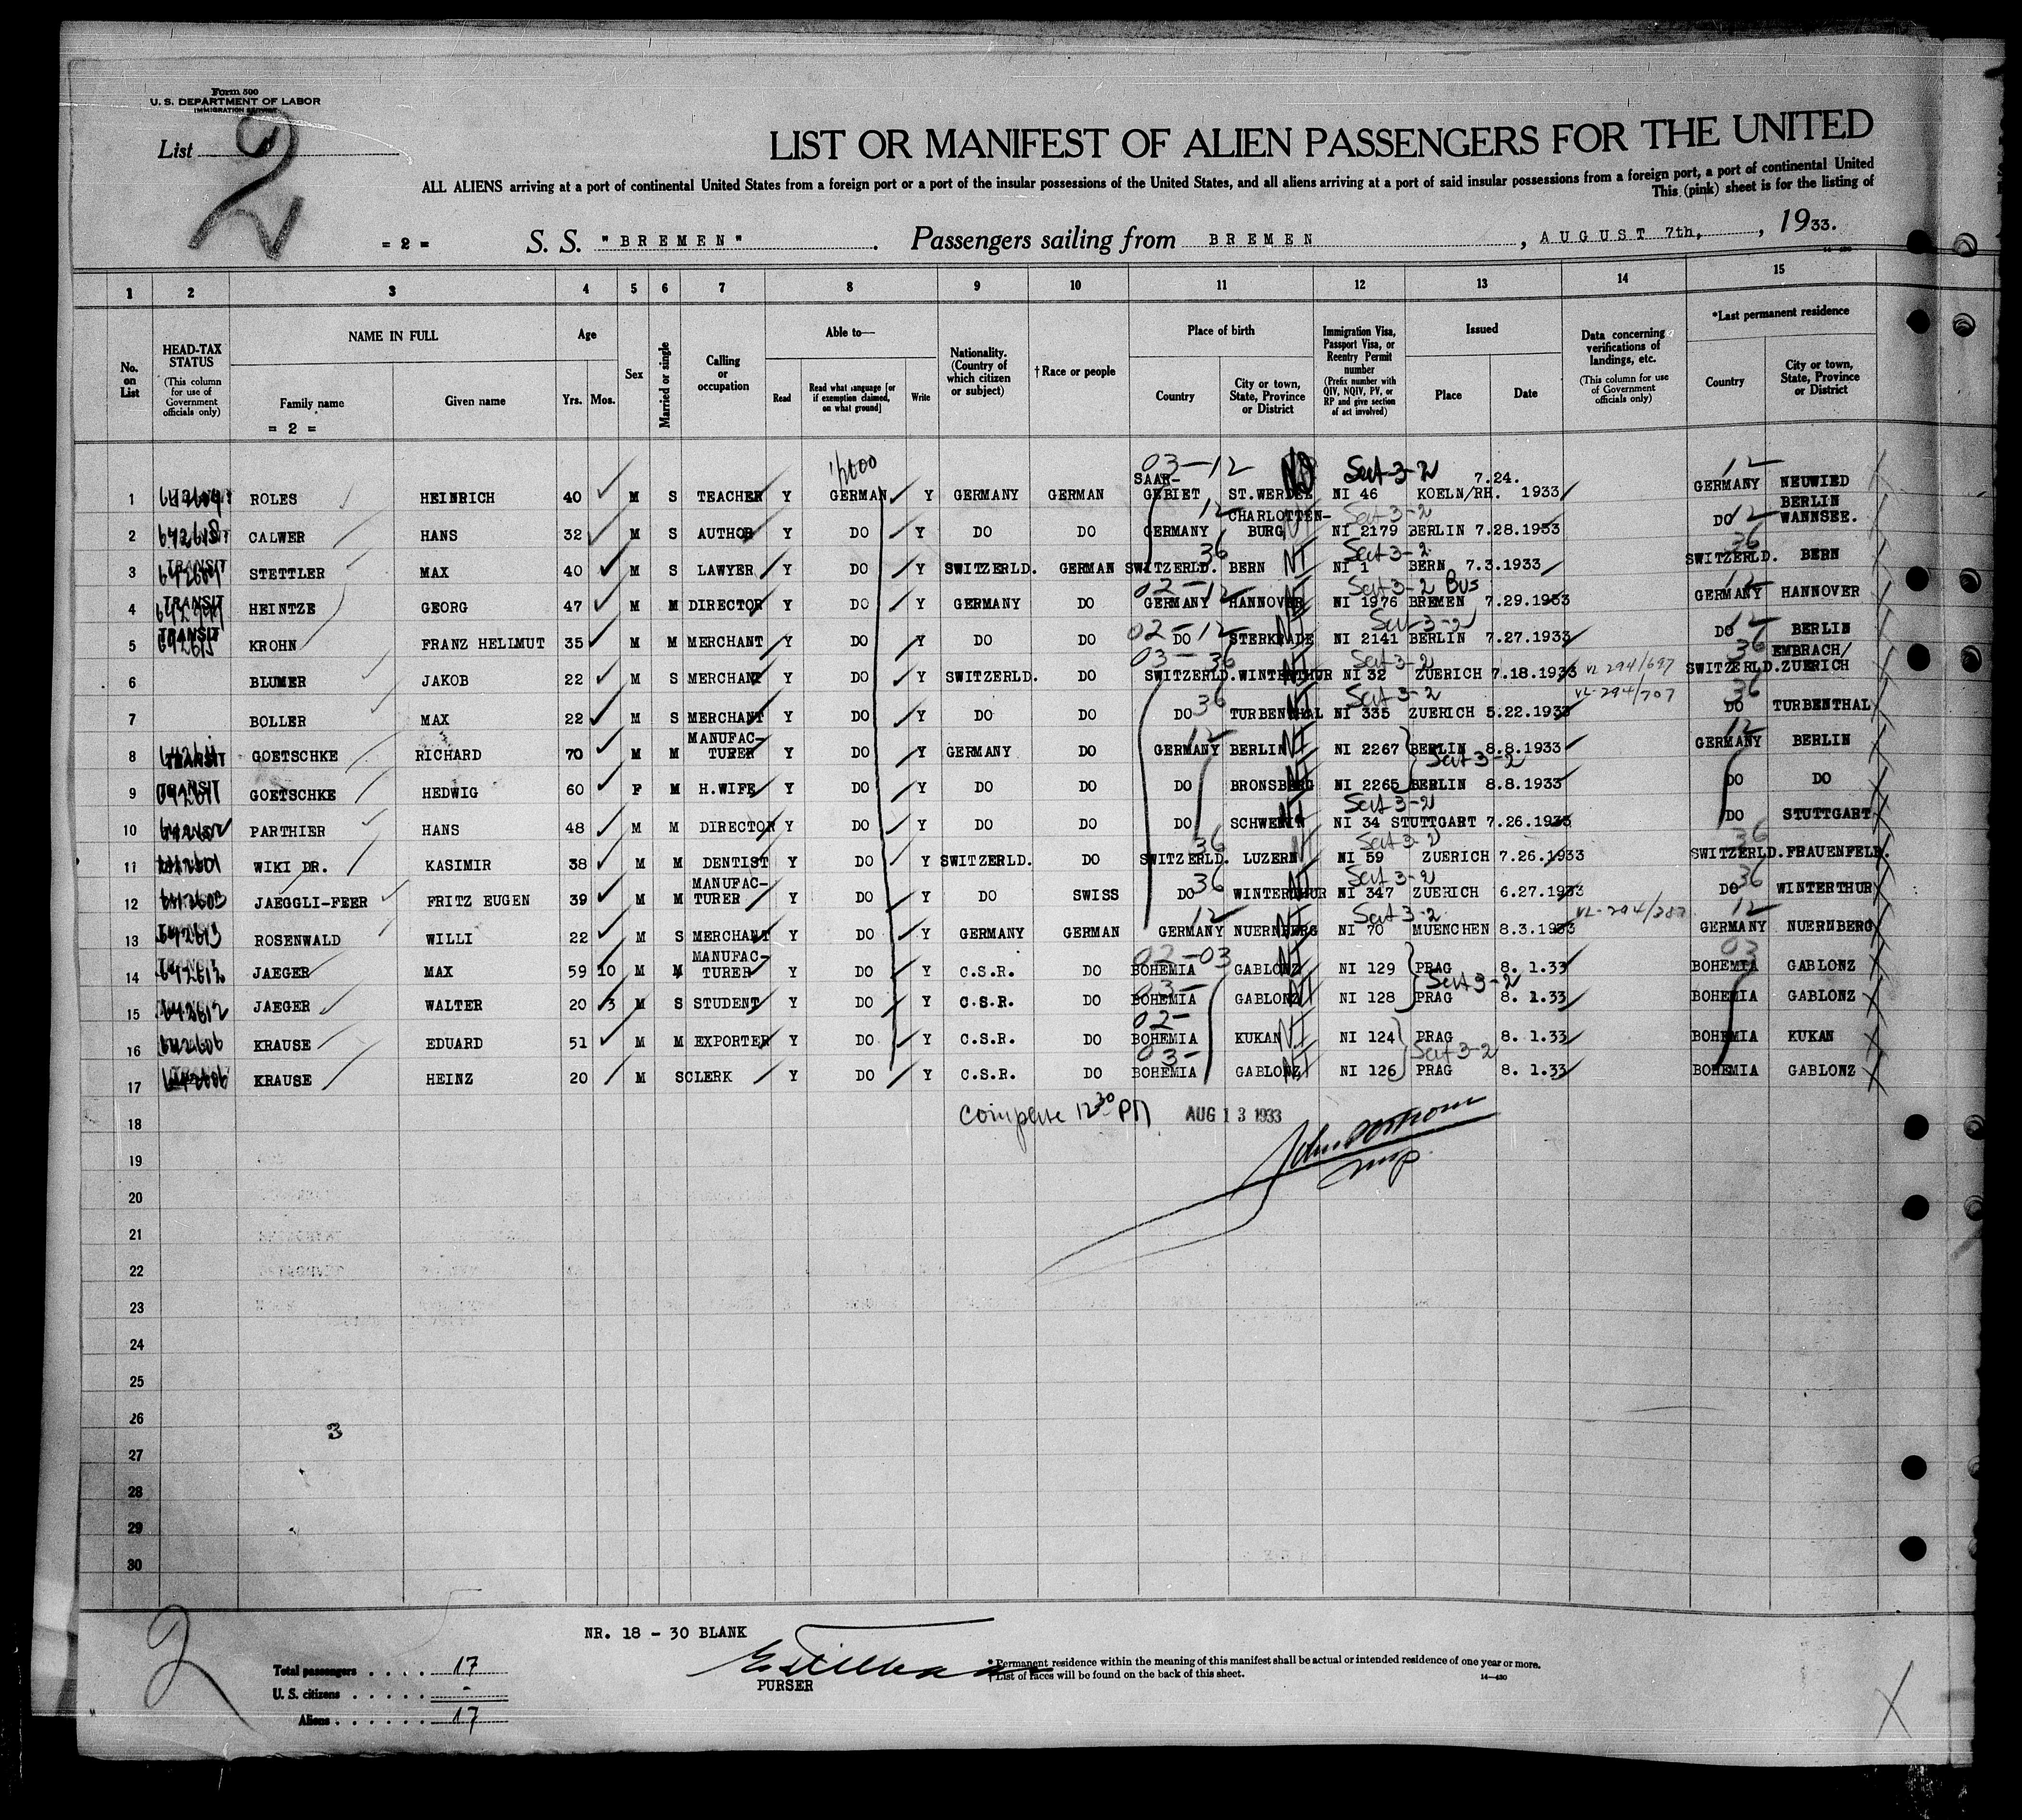 Form 500
U. S. DEPARTMENT OF LABOR
IMMIGRATION SERVICE
List 2
LIST OR MANIFEST OF ALIEN PASSENGERS FOR THE UNITED
ALL ALIENS arriving at a port of continental United States from a foreign port or a port of the insular possessions of the United States, and all aliens arriving at a port of said insular possessions from a foreign port, a port of continental United
This (pink) sheet is for the listing of
= 2 = S. S. "BREMEN" Passengers sailing from BREMEN, AUGUST 7th, 1933.
1 2 3 4 5 6 7 8 9 10 11 12 13 14 15
No. on List
HEAD-TAX STATUS (This column for use of Government officials only)
NAME IN FULL
Family name
= 2 =
Given name
Age
Yrs. Mos.
Sex
Married or single
Calling or occupation
Able to—
Read
Read what language [or if exemption claimed, on what ground]
Write
Nationality. (Country of which citizen or subject)
†Race or people
Place of birth
Country
City or town, State, Province or District
Immigration Visa, Passport Visa, or Reentry Permit number (Prefix number with QIV, NQIV, PV, or RP and give section of act involved)
Issued
Place
Date
Data concerning verifications of landings, etc. (This column for use of Government officials only)
*Last permanent residence
Country
City or town, State, Province or District
03-12 Sect 3-2 12
1 ROLES HEINRICH 40 M S TEACHER Y GERMAN Y GERMANY GERMAN SAAR-GEBIET ST.WERDEL NI 46 KOELN/RH. 7.24. 1933 GERMANY NEUWIED
12 Sect 3-2 12
2 CALWER HANS 32 M S AUTHOR Y DO Y DO DO GERMANY CHARLOTTEN-BURG NI 2179 BERLIN 7.28.1933 DO BERLIN WANNSEE.
36 NI Sect 3-2 36
3 TRANSIT STETTLER MAX 40 M S LAWYER Y DO Y SWITZERLD. GERMAN SWITZERLD. BERN NI 1 BERN 7.3.1933 SWITZERLD. BERN
02-12 Sect 3-2 Bus 12
4 TRANSIT HEINTZE GEORG 47 M M DIRECTOR Y DO Y GERMANY DO GERMANY HANNOVER NI 1976 BREMEN 7.29.1933 GERMANY HANNOVER
02-12 Sect 3-2 12
5 TRANSIT KROHN FRANZ HELLMUT 35 M M MERCHANT Y DO Y DO DO DO STERKRADE NI 2141 BERLIN 7.27.1933 DO BERLIN
03-36 Sect 3-2 36
6 BLUMER JAKOB 22 M S MERCHANT Y DO Y SWITZERLD. DO SWITZERLD. WINTERTHUR NI 32 ZUERICH 7.18.1933 VL 294/697 SWITZERLD. EMBRACH/ZUERICH
36 Sect 3-2 36
7 BOLLER MAX 22 M S MERCHANT Y DO Y DO DO DO TURBENTHAL NI 335 ZUERICH 5.22.1933 VL-294/707 DO TURBENTHAL
12 12
8 TRANSIT GOETSCHKE RICHARD 70 M M MANUFAC-TURER Y DO Y GERMANY DO GERMANY BERLIN NI 2267 BERLIN 8.8.1933 GERMANY BERLIN
Sect 3-2
9 TRANSIT GOETSCHKE HEDWIG 60 F M H.WIFE Y DO Y DO DO DO BRONSBERG NI 2265 BERLIN 8.8.1933 DO DO
Sect 3-2
10 PARTHIER HANS 48 M M DIRECTOR Y DO Y DO DO DO SCHWERIN NI 34 STUTTGART 7.26.1933 DO STUTTGART
36 Sect 3-2 36
11 WIKI DR. KASIMIR 38 M M DENTIST Y DO Y SWITZERLD. DO SWITZERLD. LUZERN NI 59 ZUERICH 7.26.1933 SWITZERLD. FRAUENFELD.
36 Sect 3-2 36
12 JAEGGLI-FEER FRITZ EUGEN 39 M M MANUFAC-TURER Y DO Y DO SWISS DO WINTERTHUR NI 347 ZUERICH 6.27.1933 DO WINTERTHUR
12 Sect 3-2 12
13 ROSENWALD WILLI 22 M S MERCHANT Y DO Y GERMANY GERMAN GERMANY NUERNBERG NI 70 MUENCHEN 8.3.1933 GERMANY NUERNBERG
02-03 03
14 JAEGER MAX 59 10 M M MANUFAC-TURER Y DO Y C.S.R. DO BOHEMIA GABLONZ NI 129 PRAG 8. 1.33 BOHEMIA GABLONZ
03- Sect 3-2
15 JAEGER WALTER 20 3 M S STUDENT Y DO Y C.S.R. DO BOHEMIA GABLONZ NI 128 PRAG 8. 1.33 BOHEMIA GABLONZ
02-
16 KRAUSE EDUARD 51 M M EXPORTER Y DO Y C.S.R. DO BOHEMIA KUKAN NI 124 PRAG 8. 1.33 BOHEMIA KUKAN
03- Sect 3-2
17 KRAUSE HEINZ 20 M S CLERK Y DO Y C.S.R. DO BOHEMIA GABLONZ NI 126 PRAG 8. 1.33 BOHEMIA GABLONZ
18 Complete 12 30 PM AUG 13 1933
19
20
21
22
23
24
25
26
3
27
28
29
30
2
NR. 18 - 30 BLANK
PURSER
Total passengers .... 17
U. S. citizens ..... -
Aliens ...... 17
* Permanent residence within the meaning of this manifest shall be actual or intended residence of one year or more.
† List of races will be found on the back of this sheet.
14—430